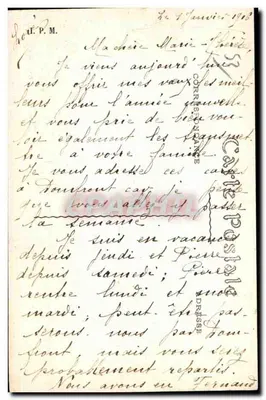 Le 1 Janvier 1918
H. P. M.
Ma chère Marie-Thérèse
Je viens aujourd'hui
vous offrir mes vœux les meil
leurs pour l'année nouvelle
et vous prie de bien vou
loir également les transmet
tre à votre famille
Je vous adresse ces
à Domfront car je pense
que vous allez y passer
la semaine.
Je suis en vacances
depuis Jeudi et Pierre
depuis samedi; Pierre
rentre lundi et moi
mardi; peut-être pas
serons nous pas Dom
front, mais vous serez
probablement repartis.
Nous avons eu Fernand
CORRESPONDANCE
Carte postale
ADRESSE